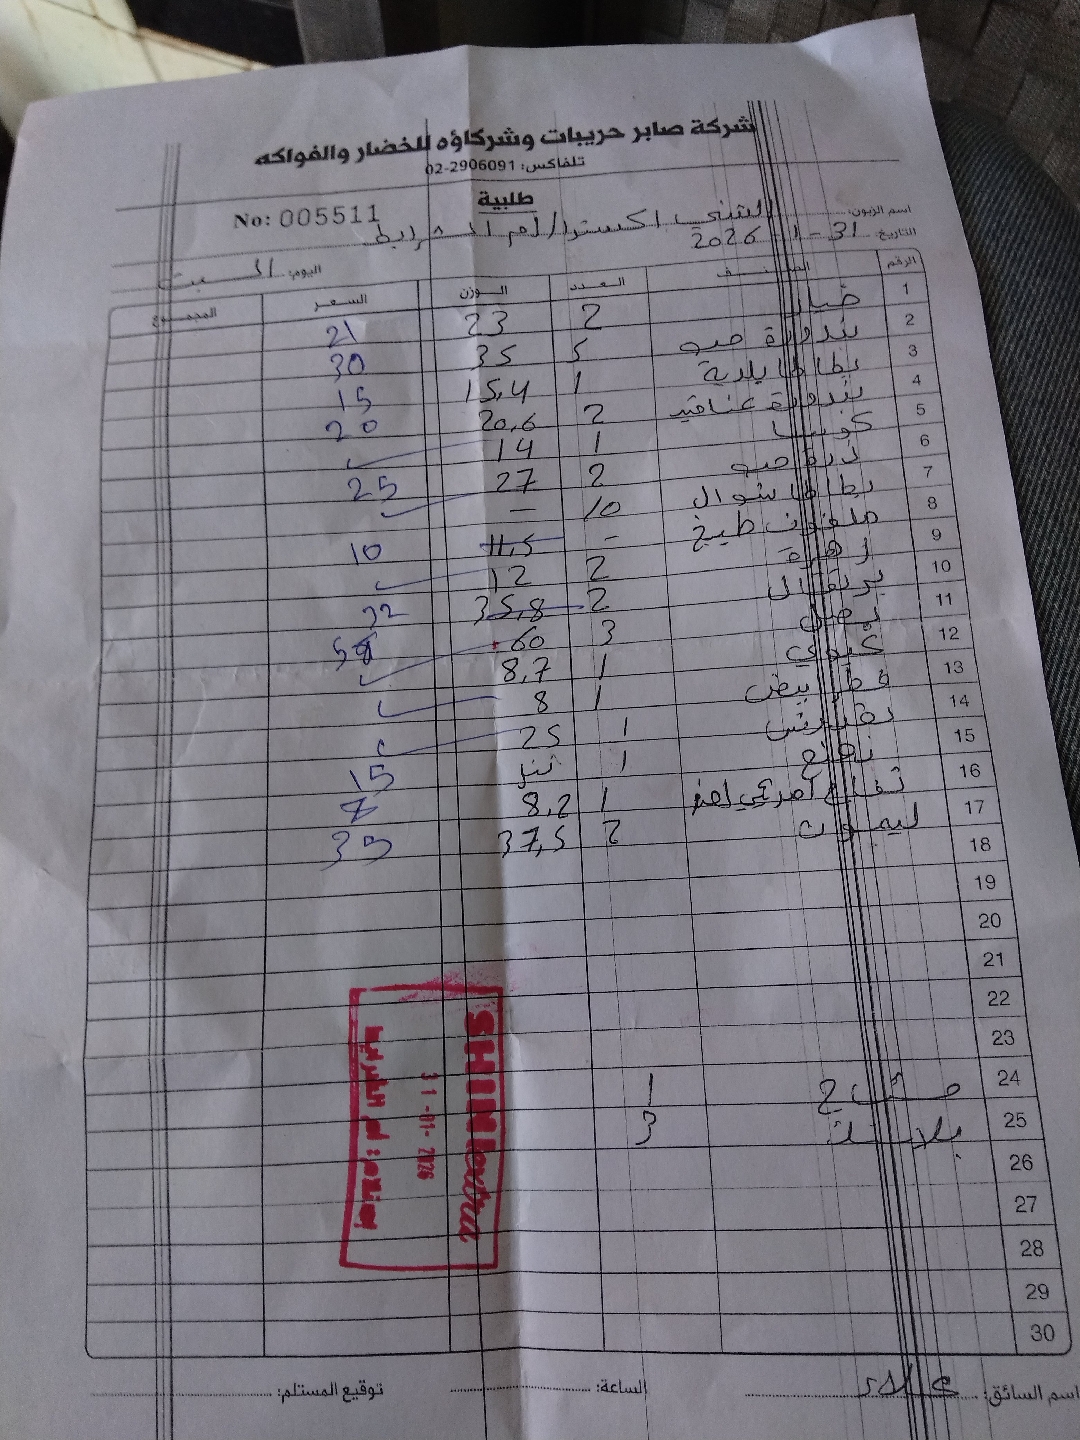 شركة صابر حريبات وشركاؤه للخضار والفواكه
تلفاكس: 02-2906091
طلبية
No: 005511
اسم الزبون: الشني اكسترا / أم الشرايط
التاريخ: 31 - 1 - 2026
اليوم: السبت
الرقم الصنف العدد الوزن السعر المجموع
1 خيار 2 23 21
2 بندورة حب 5 35 30
3 بطاطا بلدية 1 15,4 15
4 بندورة عناقيد 2 20,6 20
5 كوسا 1 14
6 ذرة حب 2 27 25
7 بطاطا شوال 10 —
8 ملفوف طبيخ - 11,5 10
9 زهرة 2 12
10 برتقال 2 35,8 32
11 بصل 3 60 58
12 كيوي 1 8,7
13 فطر ابيض 1 8
14 1 25
15 نعنع 1 15
16 تفاح 1 8,2 7
17 ليمون 2 37,5 35
18
19
20
21
22
23
24 1
25 3
26
27
28
29
30
SHINI extra
31-01-2026
اسم السائق: علاء
الساعة:
توقيع المستلم: